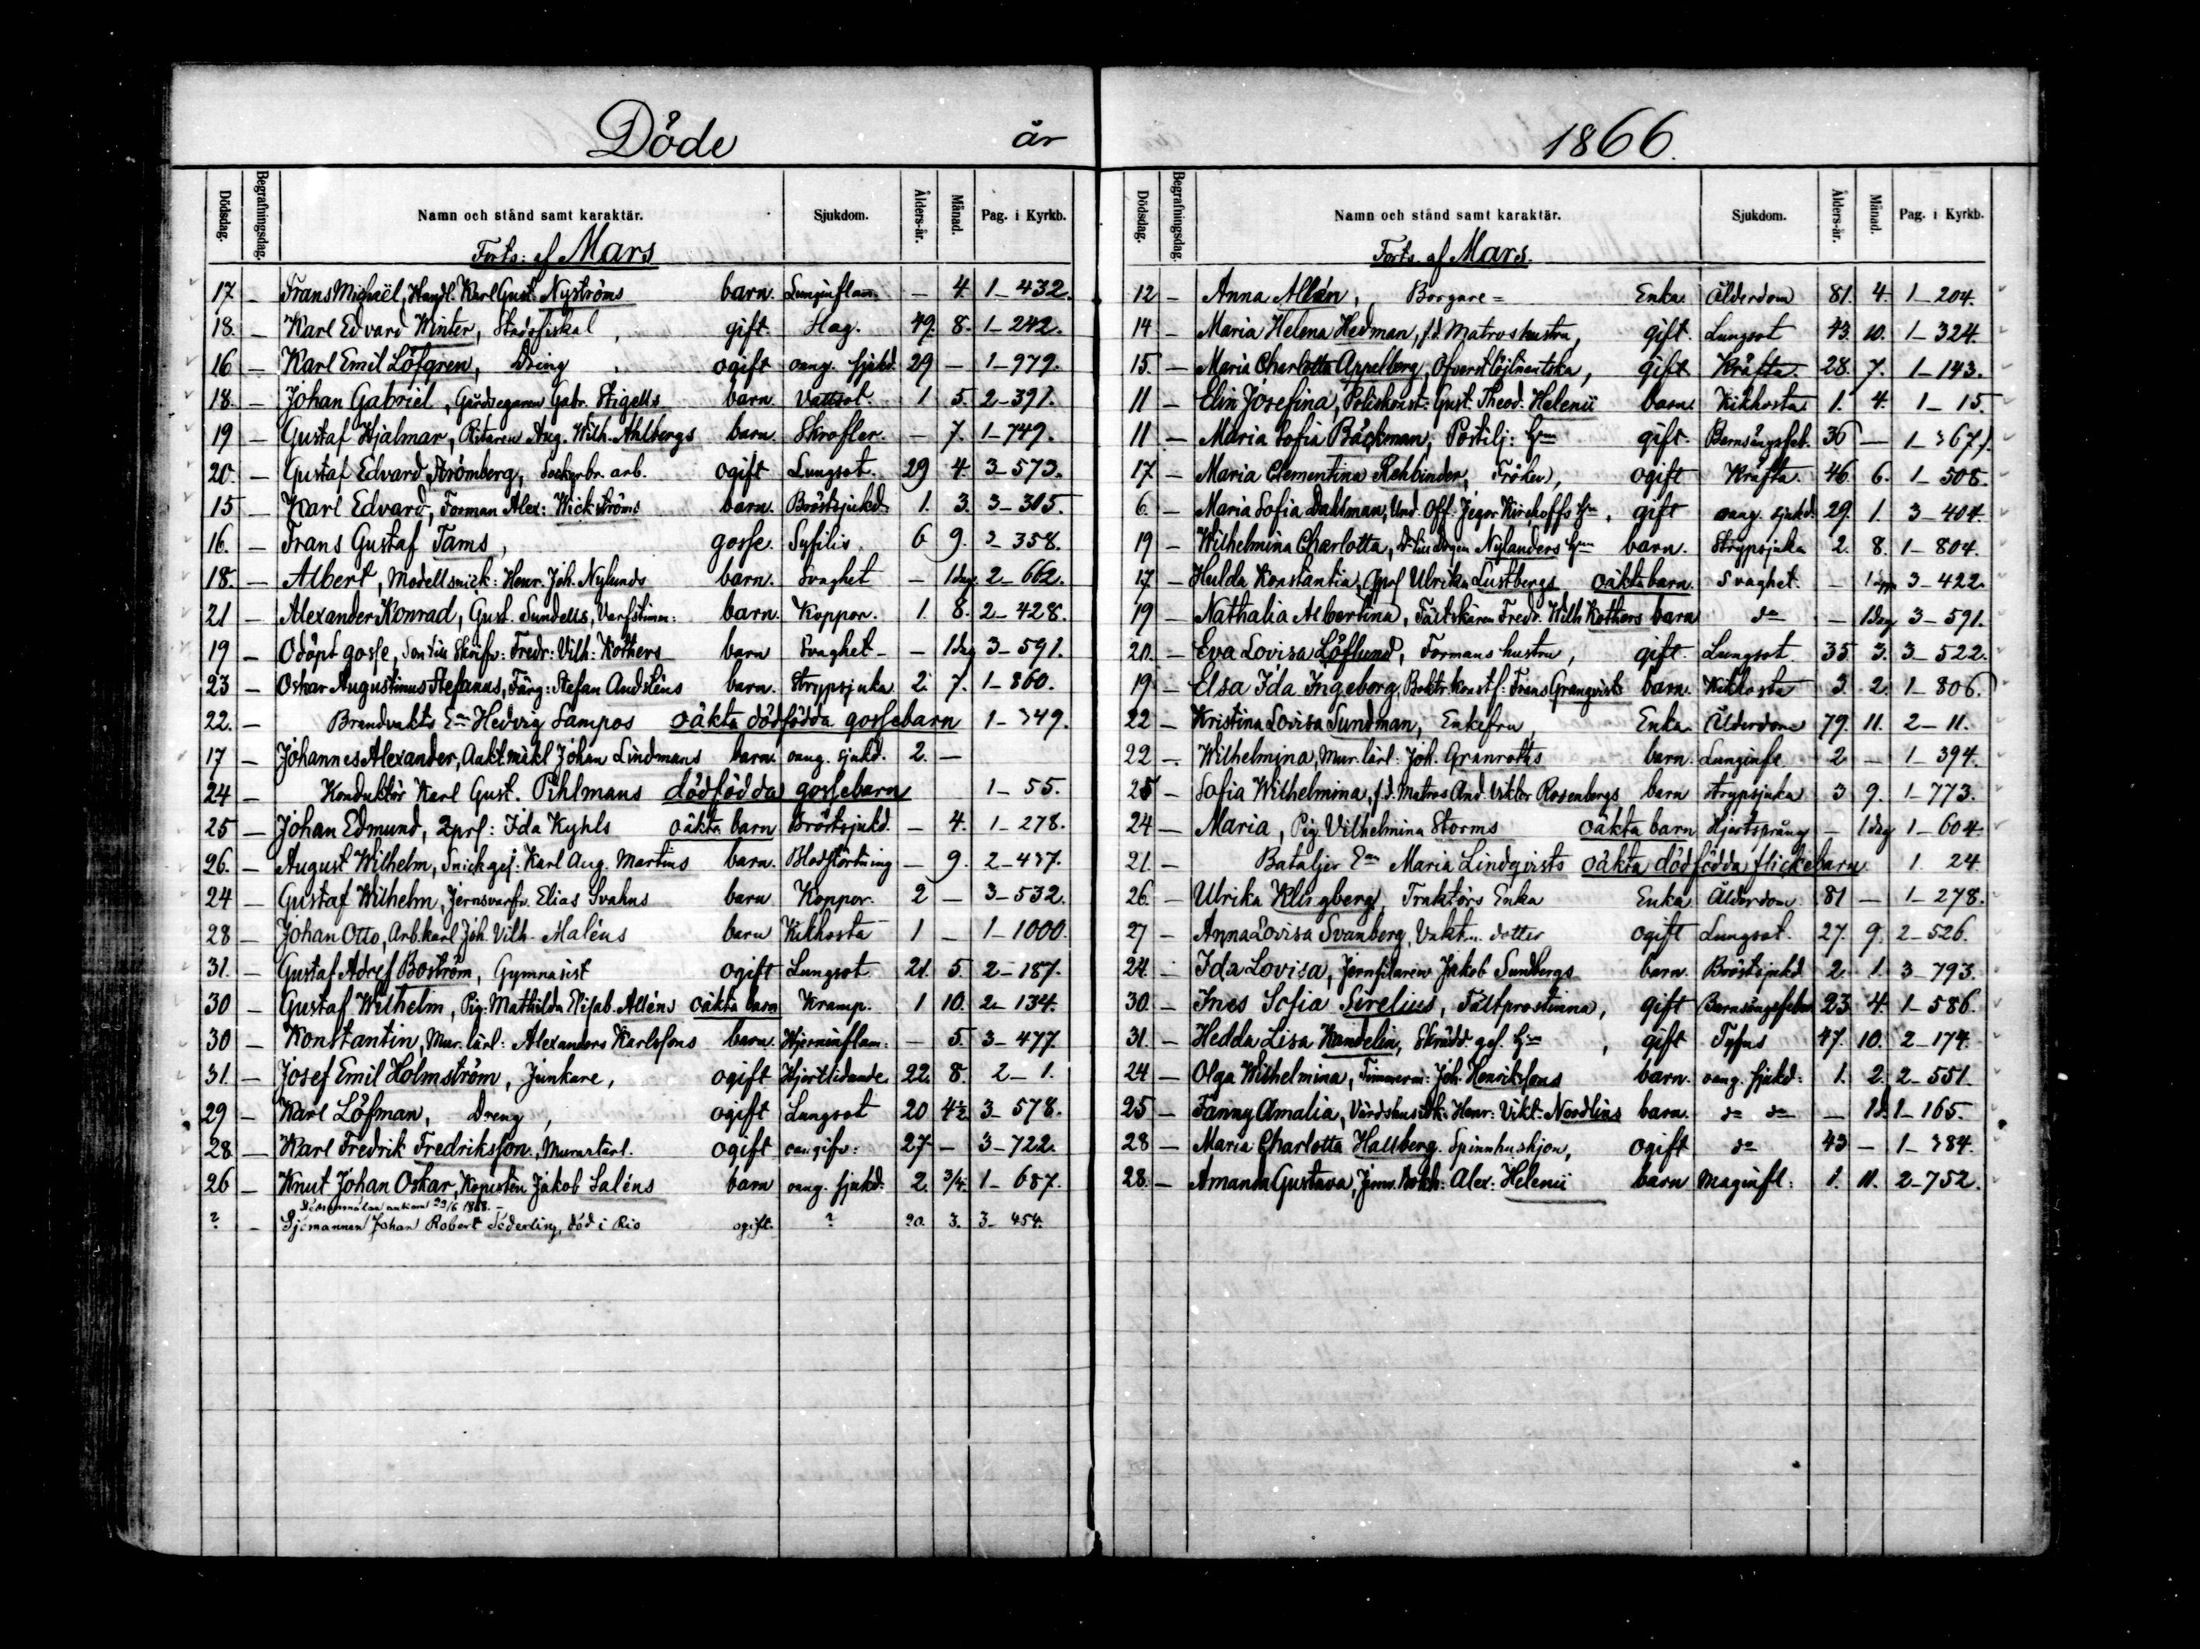 Döde år
Dödsdag. Begrafningsdag. Namn och stånd samt karaktär. Sjukdom. Ålders-år. Månad. Pag. i Kyrkb.
Forts: af Mars
17. – Frans Michaël, Handl. Karl Gust. Nyströms barn. Lunginflam. – 4. 1–432.
18. – Karl Edvard Winter, Stadsfiskal, gift. Slag. 49. 8. 1–242.
16 – Karl Emil Löfgren, Dräng, ogift oang. sjukd. 29 – 1–979.
18. – Johan Gabriel, Gårdsegaren Gabr. Stigells barn. Vattsot. 1. 5. 2–391.
19 – Gustaf Hjalmar, Ritaren Aug. Wilh. Ahlbergs barn. Skrofler. – 7. 1–749.
20. – Gustaf Edvard Strömberg, sockerbr. arb. ogift Lungsot. 29 4. 3–573.
15 – Karl Edvard, Forman Alex: Wickströms barn. Bröstsjukd. 1. 3. 3–305.
16. – Frans Gustaf Tams, gosse. Syfilis 6 9. 2–358.
18. – Albert, Modellsnick: Henr. Joh. Nylunds barn. Svaghet – 1 dag 2–662.
21 – Alexander Konrad, Gust. Sundells, Varfstimm: barn. Koppor. 1. 8. 2–428.
19 – Odöpt gosse, Son till Skrifv: Fredr: Vilh: Köthers barn Svaghet – – 1 dag 3–591.
23 – Oskar Augustinus Stefanus, Färg: Stefan Andsténs barn. Strypsjuka 2. 7. 1–860.
22. – Brandvakts Ean Hedvig Sampos oäkta dödfödda gossebarn 1–349.
17 – Johannes Alexander, Aukt.mäkl Johan Lindmans barn. oang. sjukd. 2. –
24 – Konduktör Karl Gust. Pihlmans dödfödda gossebarn 1–55.
25 – Johan Edmund, Ida Kyhls oäkta barn Bröstsjukd. – 4. 1–278.
26. – August Wilhelm, Snickgej: Karl Aug. Martins barn. Blodstörtning – 9. 2–437.
24 – Gustaf Wilhelm, Jernsvarfv. Elias Svahns barn Koppor. 2 – 3–532.
28 – Johan Otto, Arb.karl Joh. Vilh. Maléns barn Kikhosta 1 – 1–1000.
31. – Gustaf Adolf Boström, Gymnasist ogift Lungsot 21. 5. 2–187.
30 – Gustaf Wilhelm, Pig: Mathilda Elisab. Alléns oäkta barn Kramp. 1 10. 2–134.
30 – Konstantin, Mur. lärl: Alexanders Karlssons barn. Hjerninflam: – 5. 3–477.
31. – Josef Emil Holmström, Junkare, ogift Hjertlidande. 22. 8. 2–1.
29 – Karl Löfman, Dreng, ogift Lungsot 20 4½ 3–578.
28 – Karl Fredrik Fredriksson, Murarlärl. ogift oangifv: 27 – 3–722.
26 – Knut Johan Oskar, Kopisten Jakob Saléns barn oang. sjukd. 2. 3/4. 1–687.
23/6 1868. –
? – Sjömannen Johan Robert Söderling, död i Rio ogift. ? 20. 3. 3–454.
1866.
Dödsdag. Begrafningsdag. Namn och stånd samt karaktär. Sjukdom. Ålders-år. Månad. Pag. i Kyrkb.
Forts. af Mars.
12 – Anna Allén, Borgare= Enka. Ålderdom 81. 4. 1–204.
14 – Maria Helena Hedman, f.d. Matroshustru, gift. Lungsot 43. 10. 1–324.
15. – Maria Charlotta Appelberg, Öfverstlöjtnentska, gift Kräfta. 28. 7. 1–143.
11 – Elin Josefina, Poliskonst: Gust. Theod. Helenii barn. Kikhosta 1. 4. 1–15.
11 – Maria Sofia Bäckman, Postilj: Hru gift. Barnsängsfeb. 36 – 1–367.
17. – Maria Clementina Rehbinder, Fröken, ogift Kräfta 46. 6. 1–508.
6. – Maria Sofia Dahlman, Und. Off. Jegor Kirchoffs Hru, gift oang. sjukd. 29. 1. 3–404.
19 – Wilhelmina Charlotta, Nylanders barn. Strypsjuka 2. 8. 1–804.
17. – Hulda Konstantia, Ulrika Lustbergs oäkta barn. Svaghet. – 3–422.
19 – Nathalia Albertina, Fältskären Fredr. Wilh Köthers barn do – 1 dag 3–591.
20. – Eva Lovisa Löflund, Formans hustru, gift. Lungsot 35. 3. 3–522.
19 – Elsa Ida Ingeborg, Boktr. konstf: Frans Granqvists barn. Kikhosta 3. 2. 1–806.
22 – Kristina Lovisa Sundman, Enkefru, Enka. Ålderdom 79. 11. 2–11.
22 – Wilhelmina, Mur. lärl: Joh. Granroths barn. Lunginfl. 2 – 1–394.
25 – Sofia Wilhelmina, f.d. Matros And. Viktor Rosenbergs barn strypsjuka 3 9. 1–773.
24 – Maria, Pig. Vilhelmina Storms oäkta barn Hjertsprång – 1 dag 1–604.
21. – Bataljer Ean Maria Lindqvists oäkta dödfödda flickebarn 1. 24.
26. – Ulrika Klingberg, Traktörs Enka Enka Ålderdom. 81 – 1–278.
27 – Anna Lovisa Svanberg, Vaktm. dotter ogift Lungsot. 27. 9. 2–526.
24. – Ida Lovisa, Jernfilaren Jakob Sundbergs barn. Bröstsjukd 2. 1. 3–793.
30. – Ines Sofia Sirelius, Fältprostinna, gift Barnsängsfeber 23 4. 1–586.
31. – Hedda Lisa Kandelin, Skrädd. ges. Hru, gift Tyfus 47. 10. 2–174.
24 – Olga Wilhelmina, Timmerm: Joh. Henrikssons barn. oang. sjukd: 1. 2. 2–551.
25 – Fanny Amalia, Henr: Vikt: Nordlins barn do do – 1 d. 1–165.
28 – Maria Charlotta Hallberg, Spinnhushjon, ogift do 43 – 1–384.
28. – Amanda Gustava, Alex: Helenii barn Maginfl: 1. 11. 2–752.